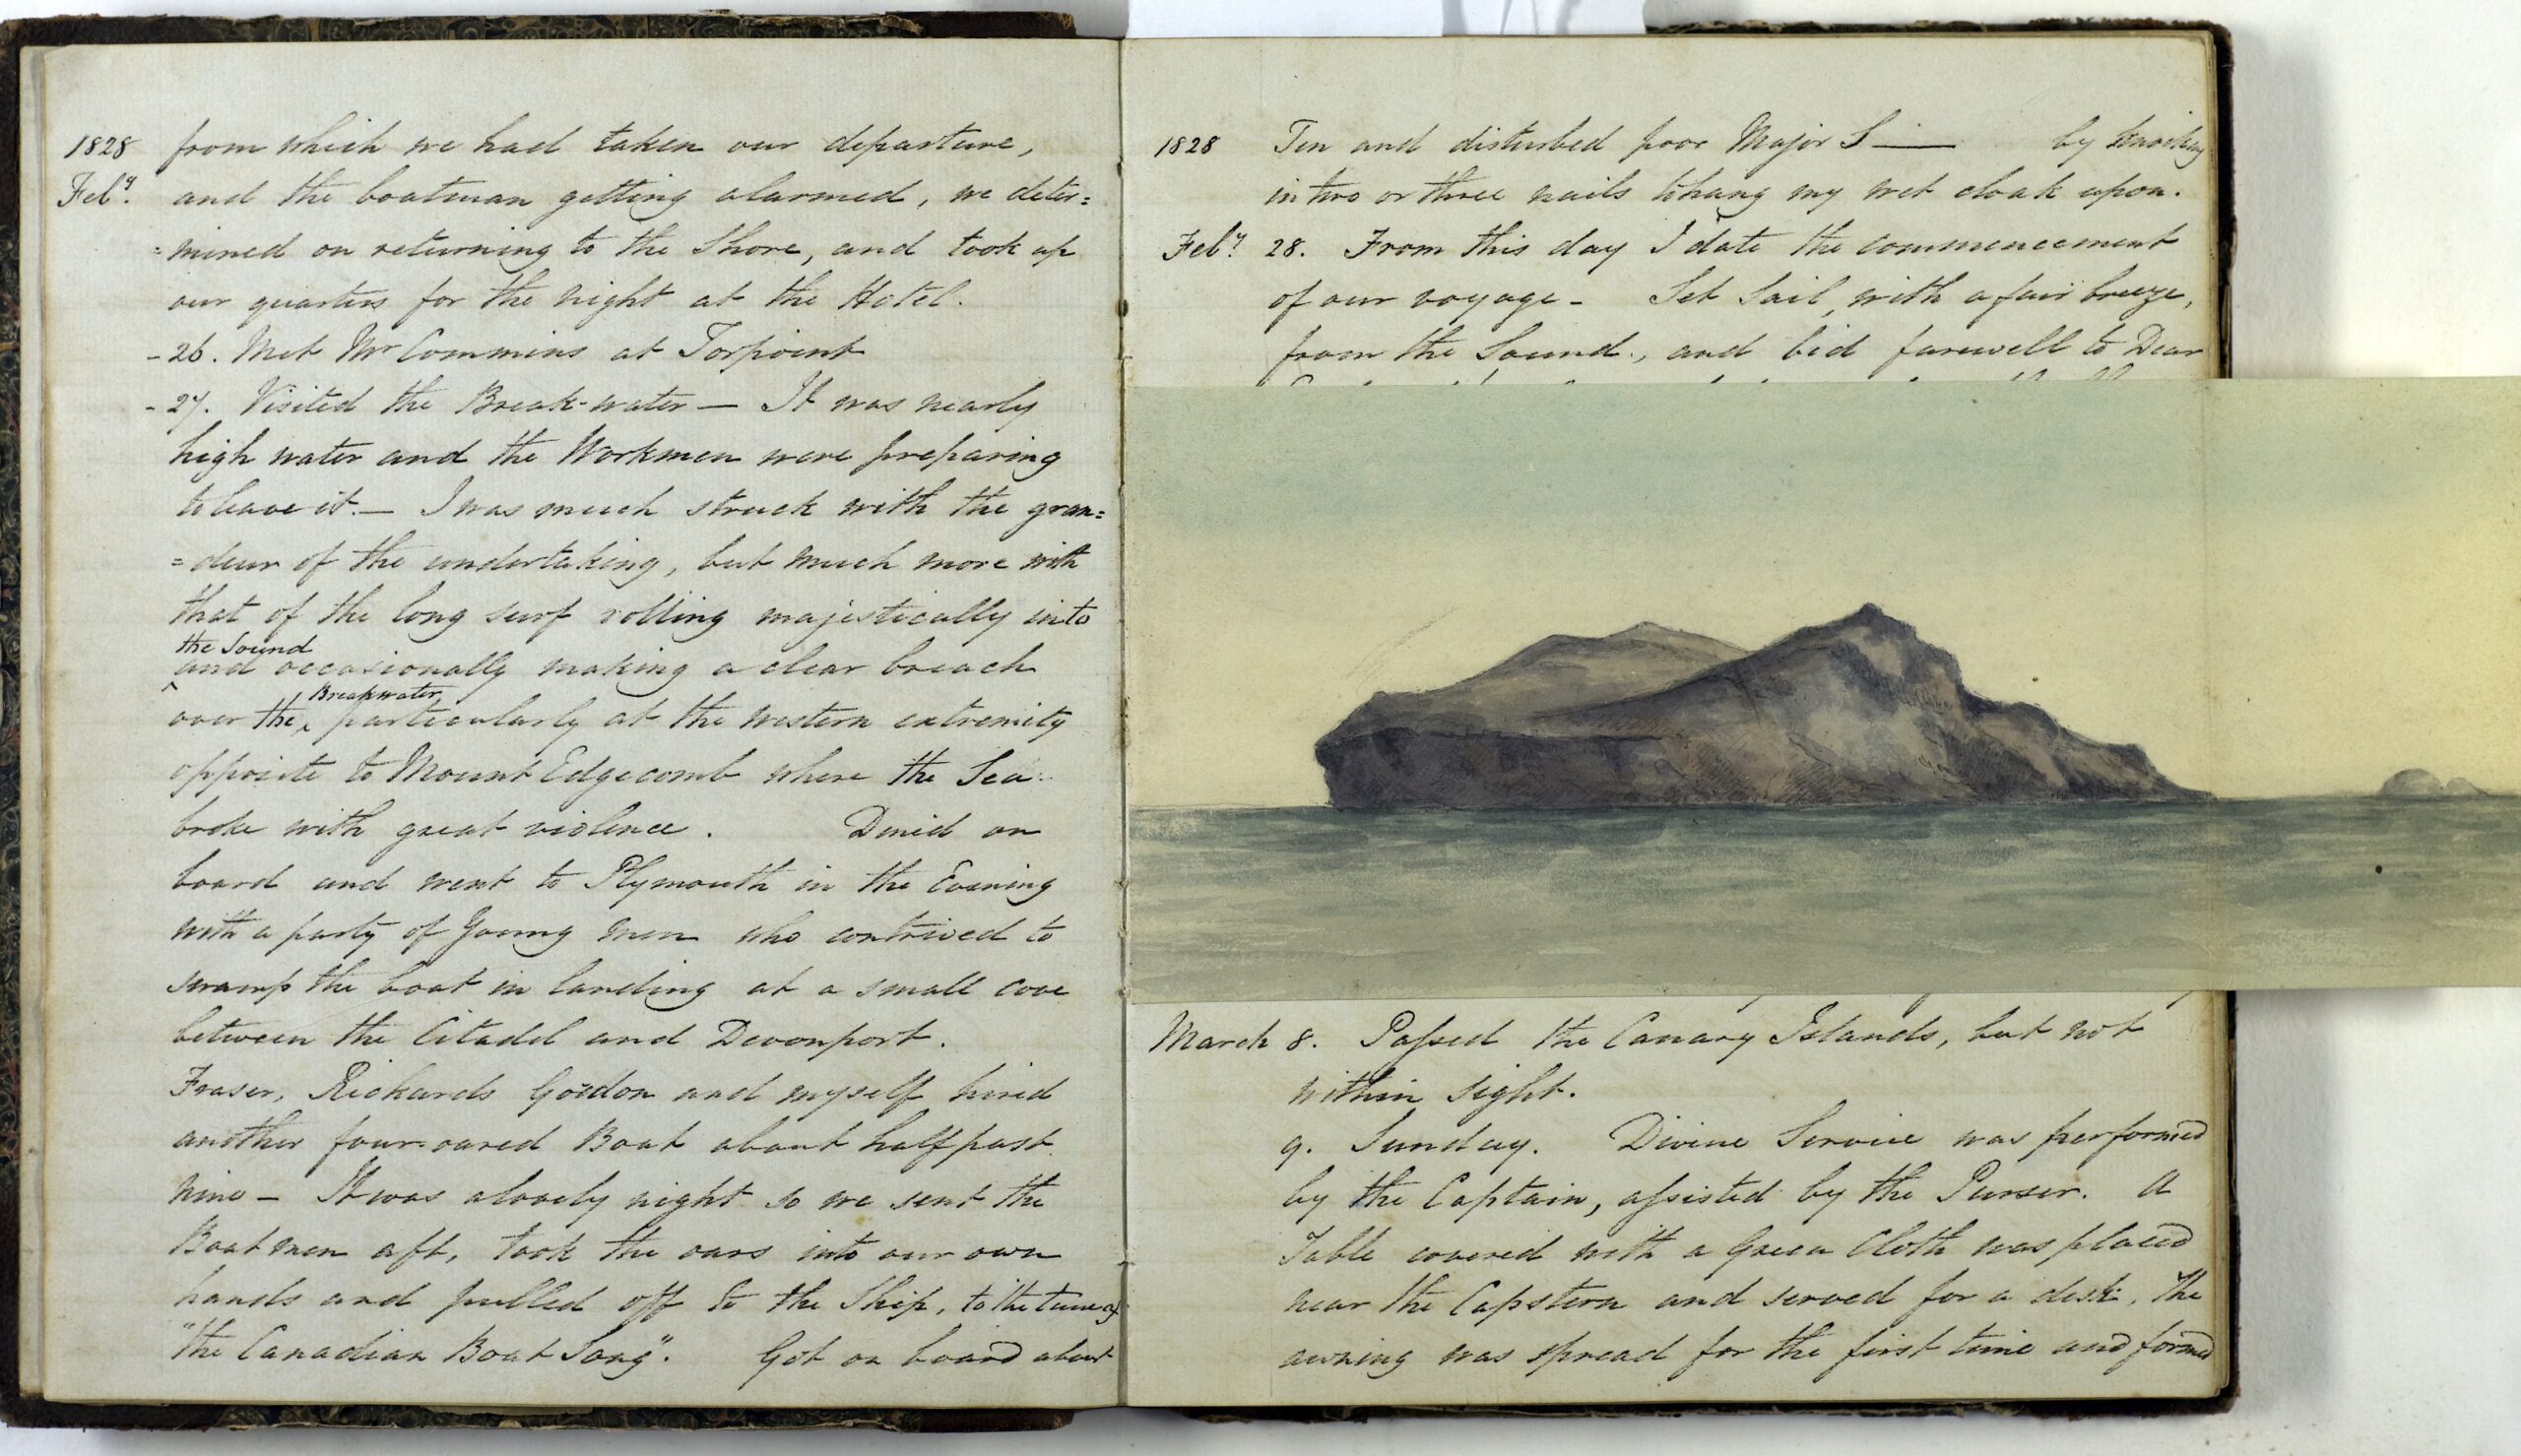 1828 from which we had taken our departure,
Feby. and the boatman getting alarmed, we deter=
=mined on returning to the Shore, and took up
our quarters for the night at the Hotel.
- 26. Met Mr Commins at Torpoint
- 27. Visited the Break-water — It was nearly
high water and the Workmen were preparing
to leave it. — I was much struck with the gran=
=deur of the undertaking, but much more with
that of the long surf rolling majestically into
the Sound
^ and occasionally making a clear breach
Breakwater,
over the ^ particularly at the western extremity
opposite to Mount Edgecomb where the Sea
broke with great violence. Dined on
board and went to Plymouth in the Evening
with a party of Young men who contrived to
swamp the boat in landing at a small cove
between the Citadel and Devonport.
Fraser, Rickards Gordon and myself hired
another four-oared Boat about half past
nine — It was a lovely night so we sent the
Boatmen aft, took the oars into our own
hands and pulled off to the Ship, to the tune of
"the Canadian Boat Song". Got on board about
1828 Ten and disturbed poor Major S — by knocking
in two or three nails to hang my wet cloak upon.
Feby. 28. From this day I date the commencement
of our voyage - Set Sail, with a fair breeze,
from the Sound., and bid farewell to Dear
March 8. Passed the Canary Islands, but not
within sight.
9. Sunday. Divine Service was performed
by the Captain, assisted by the Purser. A
Table covered with a Green Cloth was placed
near the Capstern and served for a desk. The
awning was spread for the first time and formed